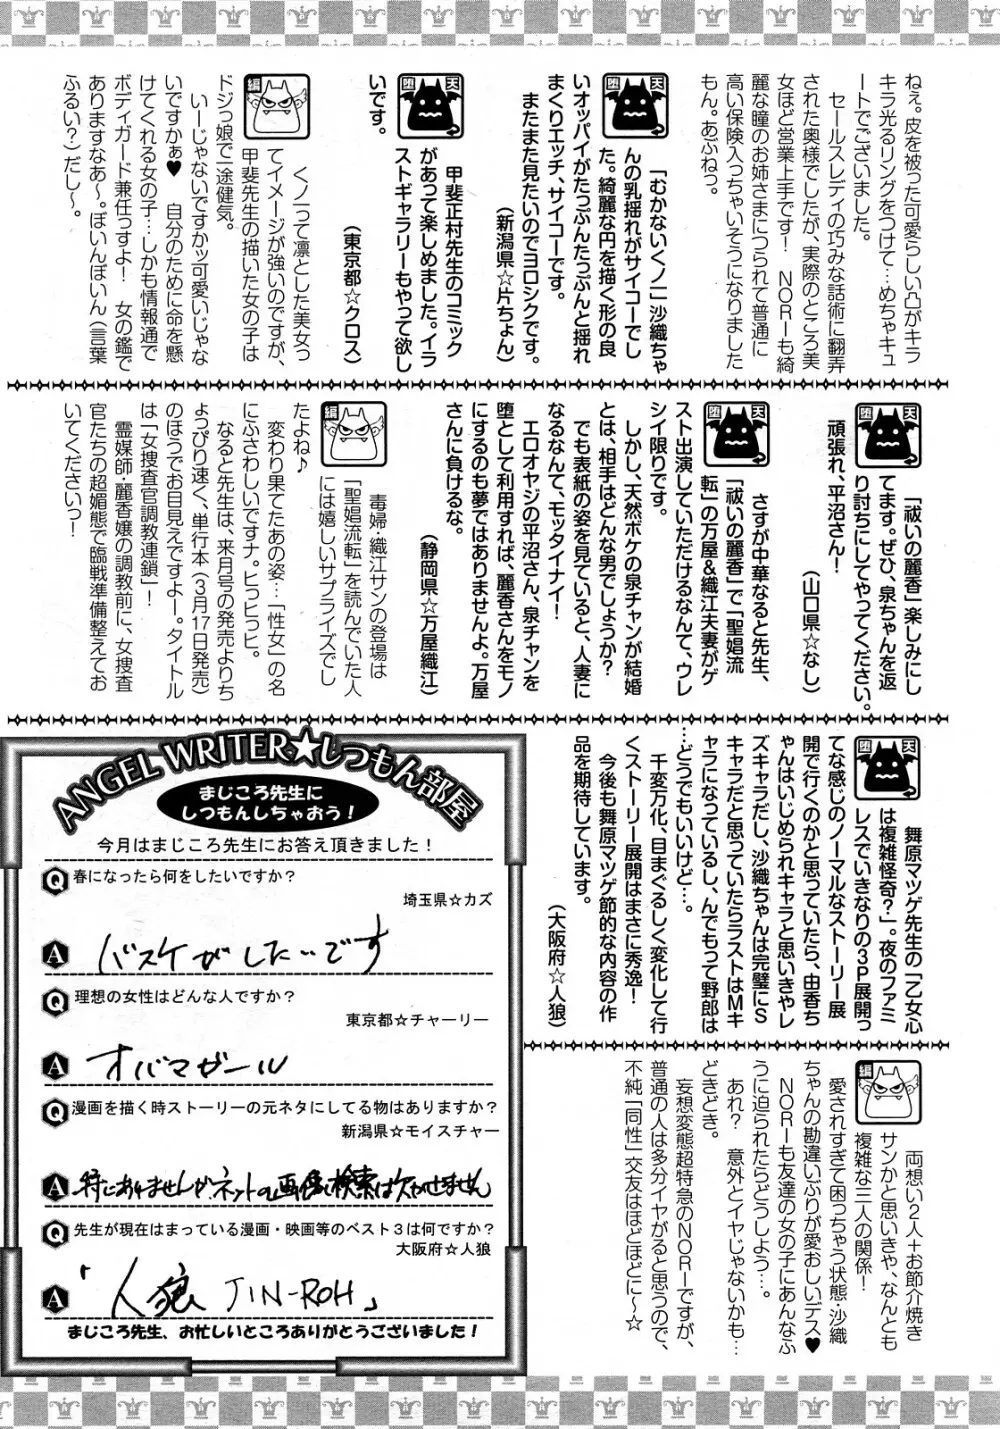 ねえ。皮を被った可愛らしい凸がキラ
キラ光るリングをつけて…めちゃキュ
ートでございました。
セールスレディの巧みな話術に翻弄
された奥様でしたが、実際のところ美
女ほど営業上手です！　NORーも綺
麗な瞳のお姉さまにつられて普通に
高い保険入っちゃいそうになりました
もん。あぶねっ。
天
堕
「むかないくノ一」沙織ちゃ
んの乳揺れがサイコーでし
た。綺麗な円を描く形の良
いオッパイがたっぷんたっぷんと揺れ
まくりエッチ、サイコーです。
またまた見たいのでヨロシクです。
（新潟県☆片ちょん）
天
堕
甲斐正村先生のコミック
があって楽しめました。イラ
ストギャラリーもやって欲し
いです。
（東京都☆クロス）
編
くノ一って凛とした美女っ
てイメージが強いのですが、
甲斐先生の描いた女の子は
ドジっ娘で一途健気。
いーじゃないですかッ可愛いじゃな
いですかぁ♥　自分のために命を懸
けてくれる女の子…しかも情報通で
ボディガード兼任っすよ！　女の鑑で
ありますなあ〜。ぼいんぼいん（言葉
ふるい？）だし〜。
天
堕
「祓いの麗香」楽しみにし
てます。ぜひ、泉ちゃんを返
り討ちにしてやってください。
頑張れ、平沼さん！
（山口県☆なし）
天
堕
さすが中華なると先生、
「祓いの麗香」で「聖娼流
転」の万屋＆織江夫妻がゲ
スト出演していただけるなんて、ウレ
シイ限りです。
しかし、天然ボケの泉チャンが結婚
とは、相手はどんな男でしょうか？
でも表紙の姿を見ていると、人妻に
なるなんて、モッタイナイ！
エロオヤジの平沼さん、泉チャンを
堕として利用すれば、麗香さんをモノ
にするのも夢ではありませんよ。万屋
さんに負けるな。
（静岡県☆万屋織江）
編
毒婦・織江サンの登場は
「聖娼流転」を読んでいた人
には嬉しいサプライズでし
たよね♪
変わり果てたあの姿…「性女」の名
にふさわしいですナ。ヒっヒっヒ。
なると先生は、来月号の発売よりち
ょっぴり速く、単行本（3月17日発売）
のほうでお目見えですよー。タイトル
は「女捜査官調教連鎖」！
霊媒師・麗香嬢の調教前に、女捜査
官たちの超媚態で臨戦準備整えてお
いてくださいっ！
天
堕
舞原マツゲ先生の「乙女心
は複雑怪奇？」。夜のファミ
レスでいきなりの3P展開っ
てな感じのノーマルなストーリー展
開で行くのかと思っていたら、由香ち
ゃんはいじめられキャラと思いきやレ
ズキャラだし、沙織ちゃんは完璧にS
キャラだと思っていたらラストはMキ
ャラになっているし、んでもって野郎は
…どうでもいいけど…。
千変万化、目まぐるしく変化して行
くストーリー展開はまさに秀逸！
今後も舞原マツゲ節的な内容の作
品を期待しています。
（大阪府☆人狼）
編
両想い2人＋お節介焼き
サンかと思いきや、なんとも
複雑な三人の関係！
愛されすぎて困っちゃう状態・沙織
ちゃんの勘違いぶりが愛おしいデス♥
NORーも友達の女の子にあんなふ
うに迫られたらどうしよう…。
あれ？　意外とイヤじゃないかも…
どきどき。
妄想変態超特急のNORーですが、
普通の人は多分イヤがると思うので、
不純「同性」交友はほどほどに〜☆
ANGEL WRITER★しつもん部屋
まじころ先生に
しつもんしちゃおう！
今月はまじころ先生にお答え頂きました！
Q 春になったら何をしたいですか？
埼玉県☆カズ
A バスケがしたいです
Q 理想の女性はどんな人ですか？
東京都☆チャーリー
A オバマガール
Q 漫画を描く時ストーリーの元ネタにしてる物はありますか？
新潟県☆モイスチャー
A 特にありませんがネットの画像検索は欠かせません
Q 先生が現在はまっている漫画・映画等のベスト3は何ですか？
大阪府☆人狼
A 「人狼 JIN-ROH」
まじころ先生、お忙しいところありがとうございました！